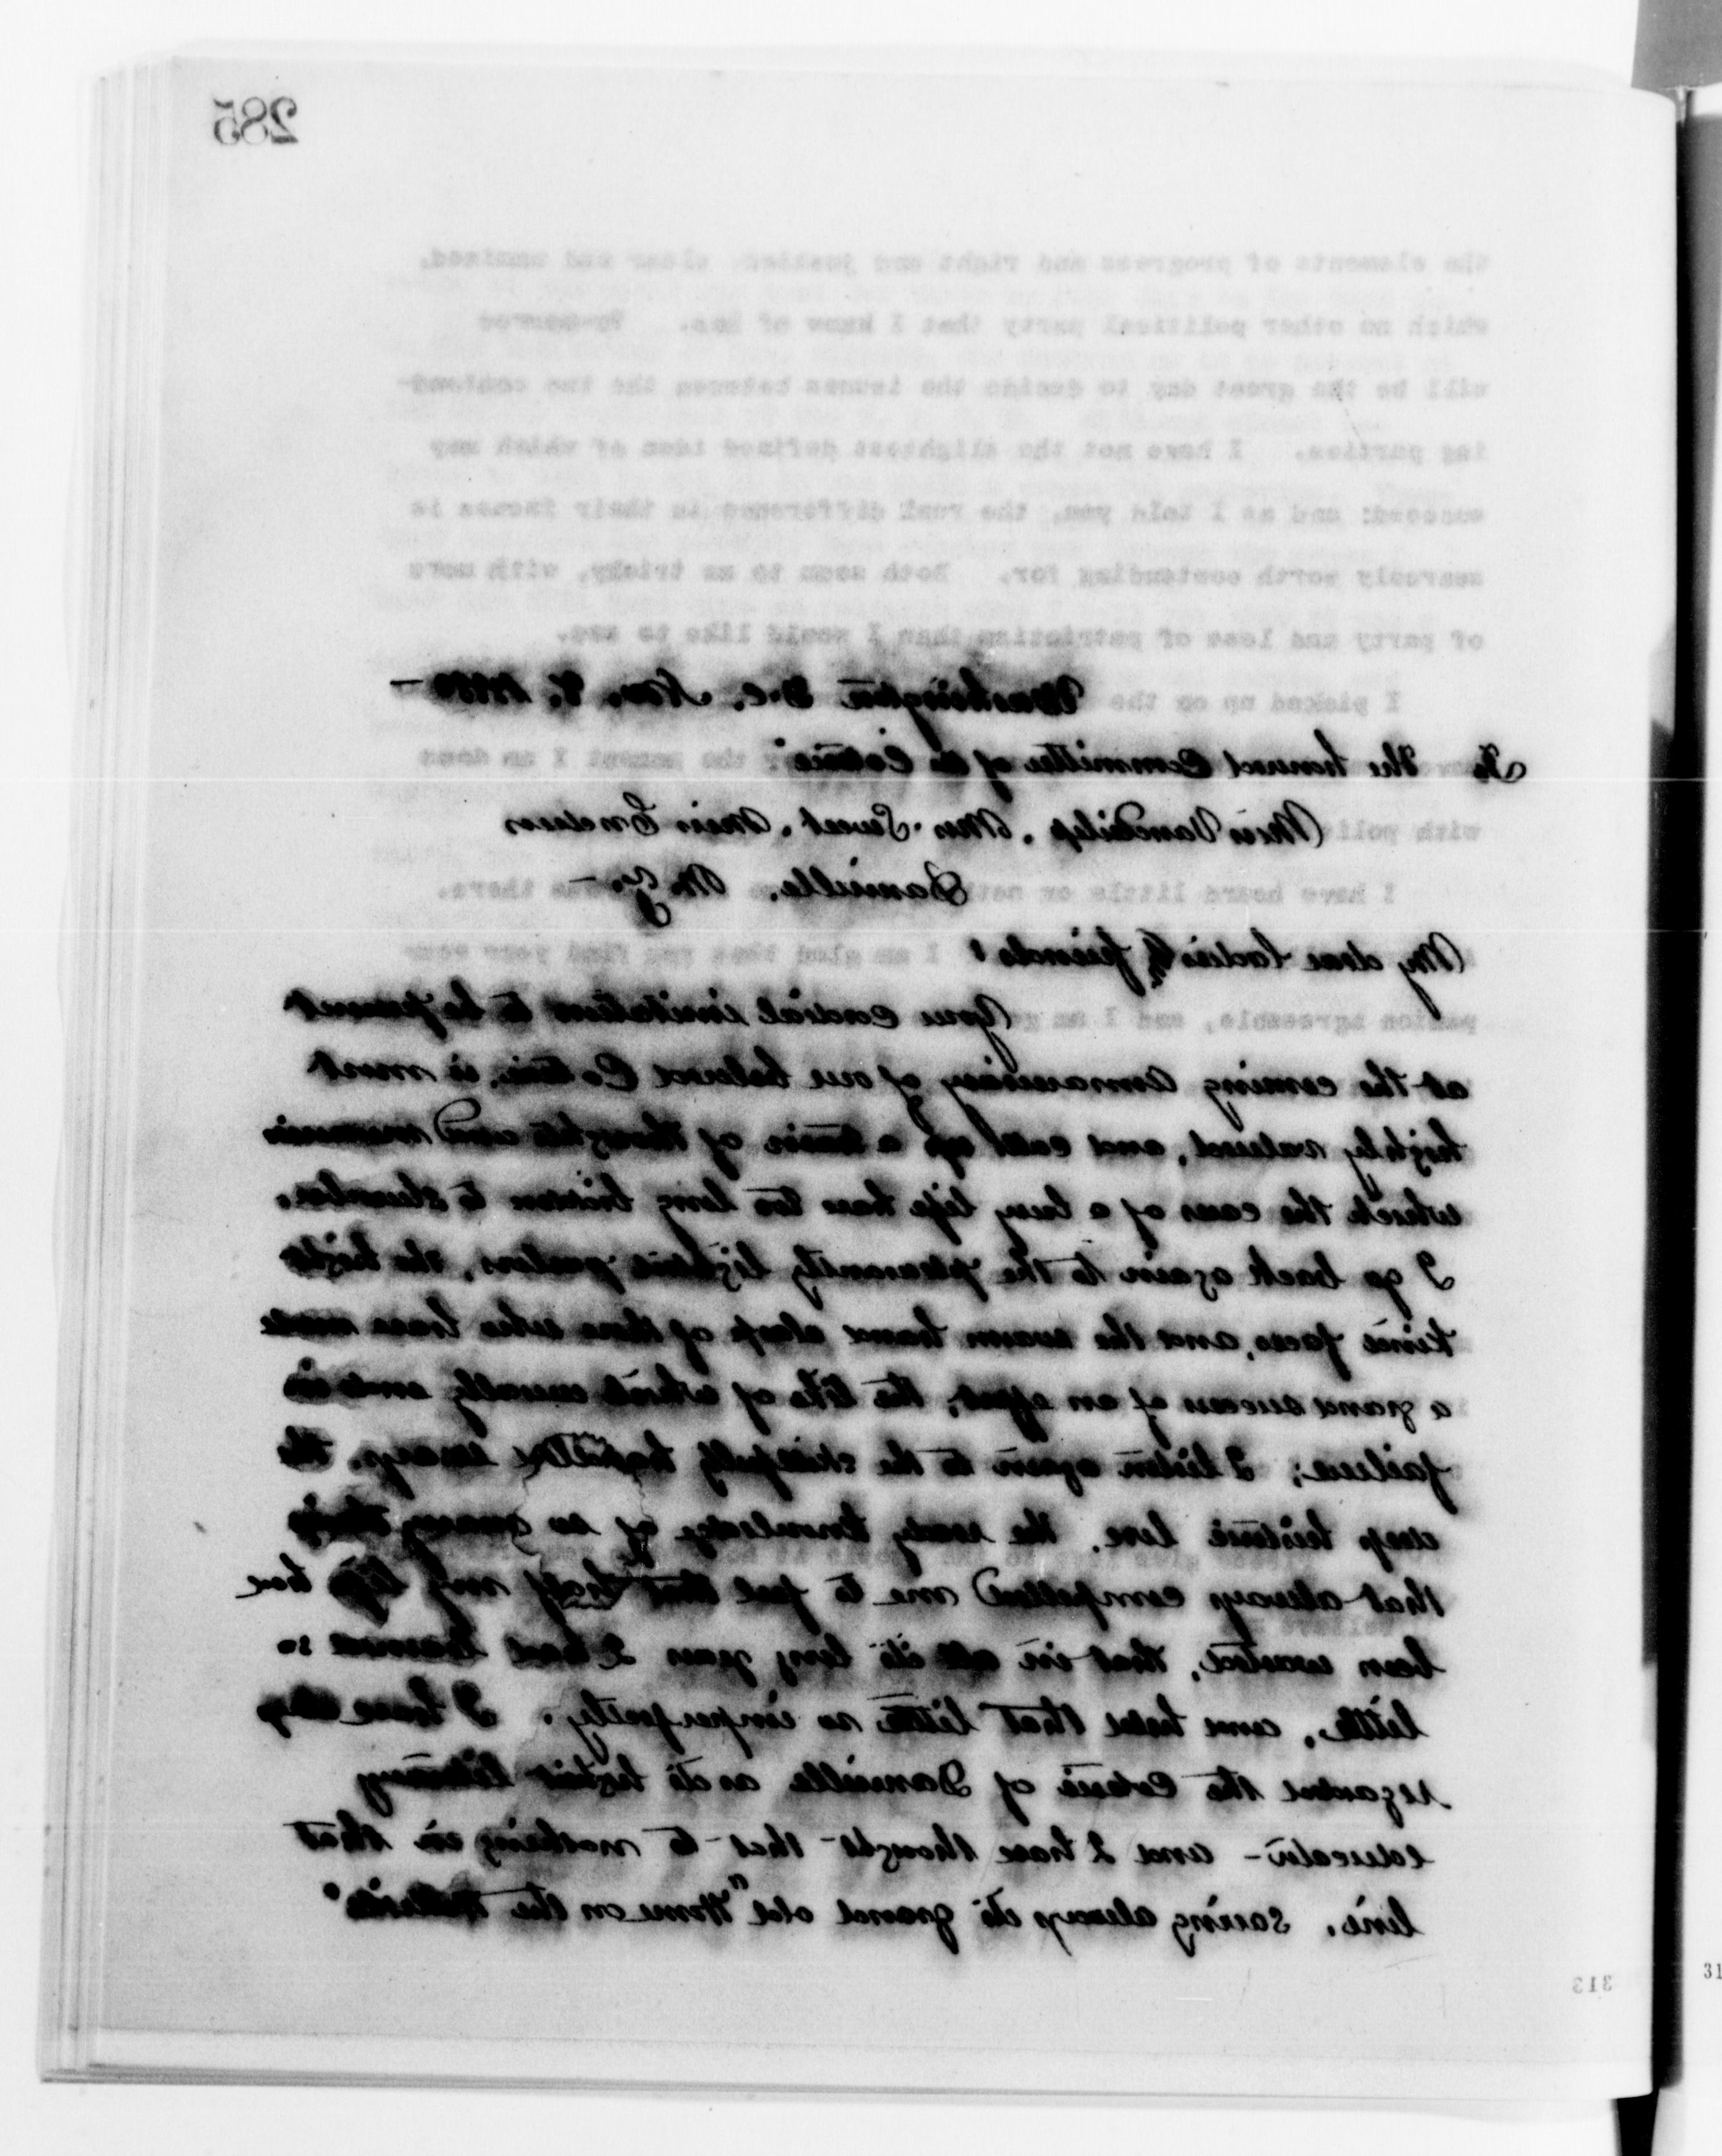 285
the elements of progress and right and justice, clear and unmixed,
which no other political party that I know of has. To-morrow
will be the great day to decide the issues between the two contend-
ing parties. I have not the slightest defined idea of which may
succeed: and as I told you, the real difference in their issues is
scarcely worth contending for. Both seem to me tricky, with more
of party and less of patriotism than I would like to see.
I picked up on the
the moment I am done
with poli
I have heard little or noth there.
I am glad that you find your
pansion agreeable, and I am
Washington D.C. Nov. 8. 
To the honored Committee of the Coterie
Miss VanDerlip, Mrs. Sweet, Miss Endress
Dansville, N.Y. —
My dear ladies & friends:
Your cordial invitation to be present
at the coming anniversary of our beloved Coterie, is most
highly valued, and calls up a train of thoughts and memories
which the cares of a busy life have too long bidden to slumber.
I go back again to the pleasantly lighted parlors, the bright
kind faces, and the warm hand clasp of those who have made
a grand success of an effort, the like of which usually ends in
failure; I listen again to the skilfully handled essays, the
deep historic lore, the ready knowledge of so many things
that always compelled me to feel that half my life had
been wasted, that in all its long years I had learned so
little, and held that little so imperfectly. I have always
regarded the Coterie of Dansville as its highest literary
educator - and I have thought that to nothing in that
line, saving always its grand old "Home on the Hillside"
313
31